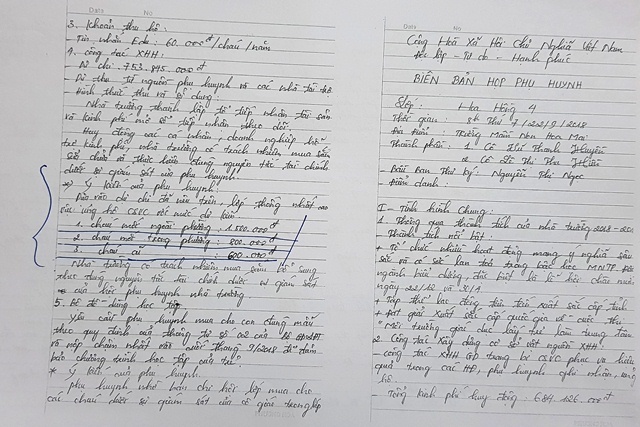 Date No
3. Khoản thu hộ:
- Tin nhắn Edu: 60.000đ/cháu/năm
4. Công tác XHH:
- Dự chi 753.845.000đ
- Dự thu từ nguồn phụ huynh và các nhà tài trợ
- Hình thức thu và sử dụng
Nhà trường thành lập tổ tiếp nhận tài sản
và kinh phí mở sổ tiếp nhận theo dõi.
Huy động các cá nhân, doanh nghiệp hỗ
trợ kinh phí nhà trường có trách nhiệm mua sắm
sửa chữa và thực hiện đúng nguyên tắc tài chính
dưới sự giám sát của phụ huynh.
* Ý kiến của phụ huynh:
Dựa vào dự chi đã nêu trên, lớp thống nhất
ủng hộ CSVC với mức dự kiến
1. cháu mới ngoài phường: 1.500.000đ
2. cháu mới trong phường: 800.000đ
3. cháu cũ 600.000đ
Nhà trường có trách nhiệm mua sắm bổ sung
theo đúng nguyên tắc tài chính dưới sự giám sát
của hội phụ huynh nhà trường
5. Bộ đồ dùng học tập
Yêu cầu phụ huynh mua cho con đúng mẫu
theo quy định của thông tư số 02 của Bộ GD&ĐT
và nộp chậm nhất vào cuối tháng 9/2018 để đảm
bảo chương trình học tập của trẻ.
* Ý kiến của phụ huynh.
phụ huynh nhờ ban chi hội lớp mua cho
các cháu dưới sự giám sát của cô giáo trong lớp
Date No
Cộng Hoà Xã Hội Chủ Nghĩa Việt Nam
Độc lập - Tự do - Hạnh phúc
BIÊN BẢN HỌP PHỤ HUYNH
Lớp: Hoa Hồng 4
Thời gian: 8h Thứ 7/22/9/2018
Địa điểm: Trường Mầm Non Hoa Mai
Thành phần: 1. Cô Thanh Huyền
2. Cô Thị Thu Hiền
- Bầu Ban Thư ký: Nguyễn Thị Ngọc
- Điểm danh:
I - Tình hình chung:
1. Thông qua thành tích của nhà trường 2018-201
- Thành tích nổi bật
+ Tổ chức nhiều hoạt động mang ý nghĩa sâu
sắc và có sức lan toả trong các học
ngành biểu dương đặc biệt là lễ hội chào mừng
ngày 22/12 và
+ Tập thể lao động tiên tiến xuất sắc cấp tỉnh
+ Đạt giải xuất sắc cấp quốc gia về cuộc thi
"Môi trường giáo dục lấy trẻ làm trung tâm
2. Công tác Xây dựng cơ sở vật nguồn XHH:
- công tác XHH GD trang bị CSVC phục vụ hiệu
quả trong các HĐ, phụ huynh ghi nhận, ủng
hộ.
- Tổng kinh phí huy động: 684.126.000đ